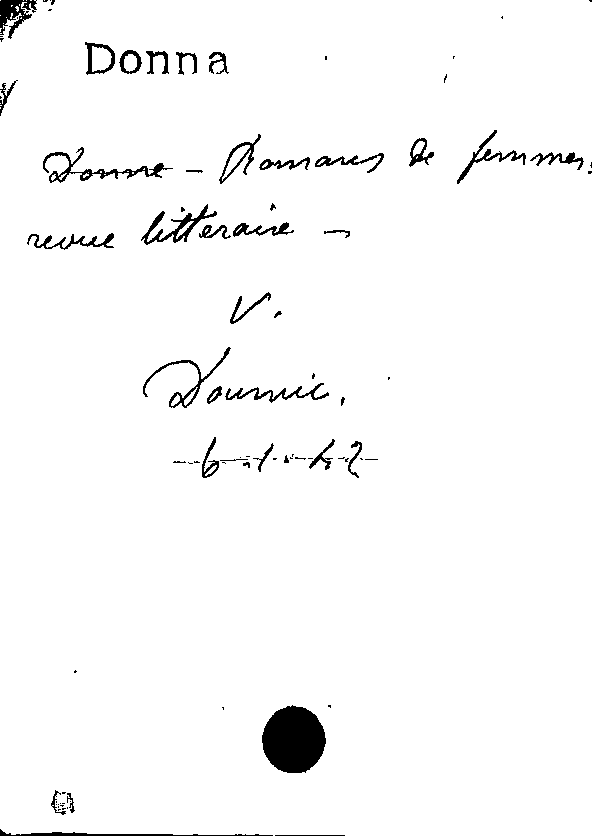 Donna
Donne - Romans de femmes.
revue litteraire -
V.
Doumic.
6.1.42